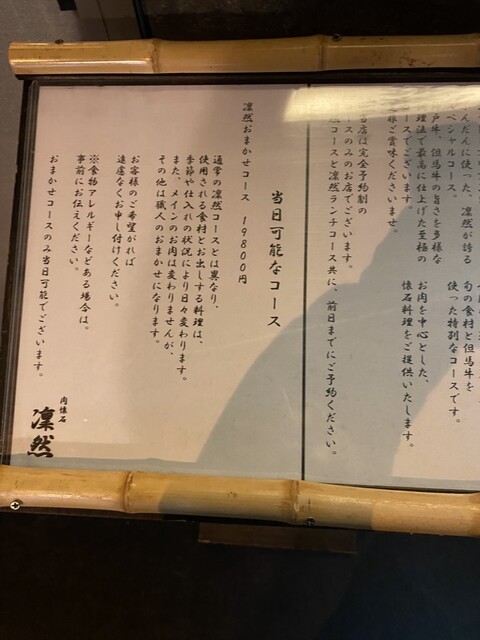 ふんだんに使った、凛然が誇る
スペシャルコース。
神戸牛、但馬牛の旨さを多様な
調理法で最高に仕上げた至極の
コースでございます。
是非ご賞味くださいませ。
旬の食材と但馬牛を
使った特別なコースです。
お肉を中心とした、
懐石料理をご提供いたします。
当店は完全予約制の
コースのみのお店でございます。
凛然コースと凛然ランチコース共に、前日までにご予約ください。
当日可能なコース
凛然おまかせコース 19800円
通常の凛然コースとは異なり、
使用される食材とお出しする料理は、
季節や仕入れの状況により日々変わります。
また、メインのお肉は変わりませんが、
その他は職人のおまかせになります。
お客様のご希望がれば
遠慮なくお申し付けください。
※食物アレルギーなどある場合は、
事前にお伝えください。
おまかせコースのみ当日可能でございます。
肉懐石
凛然